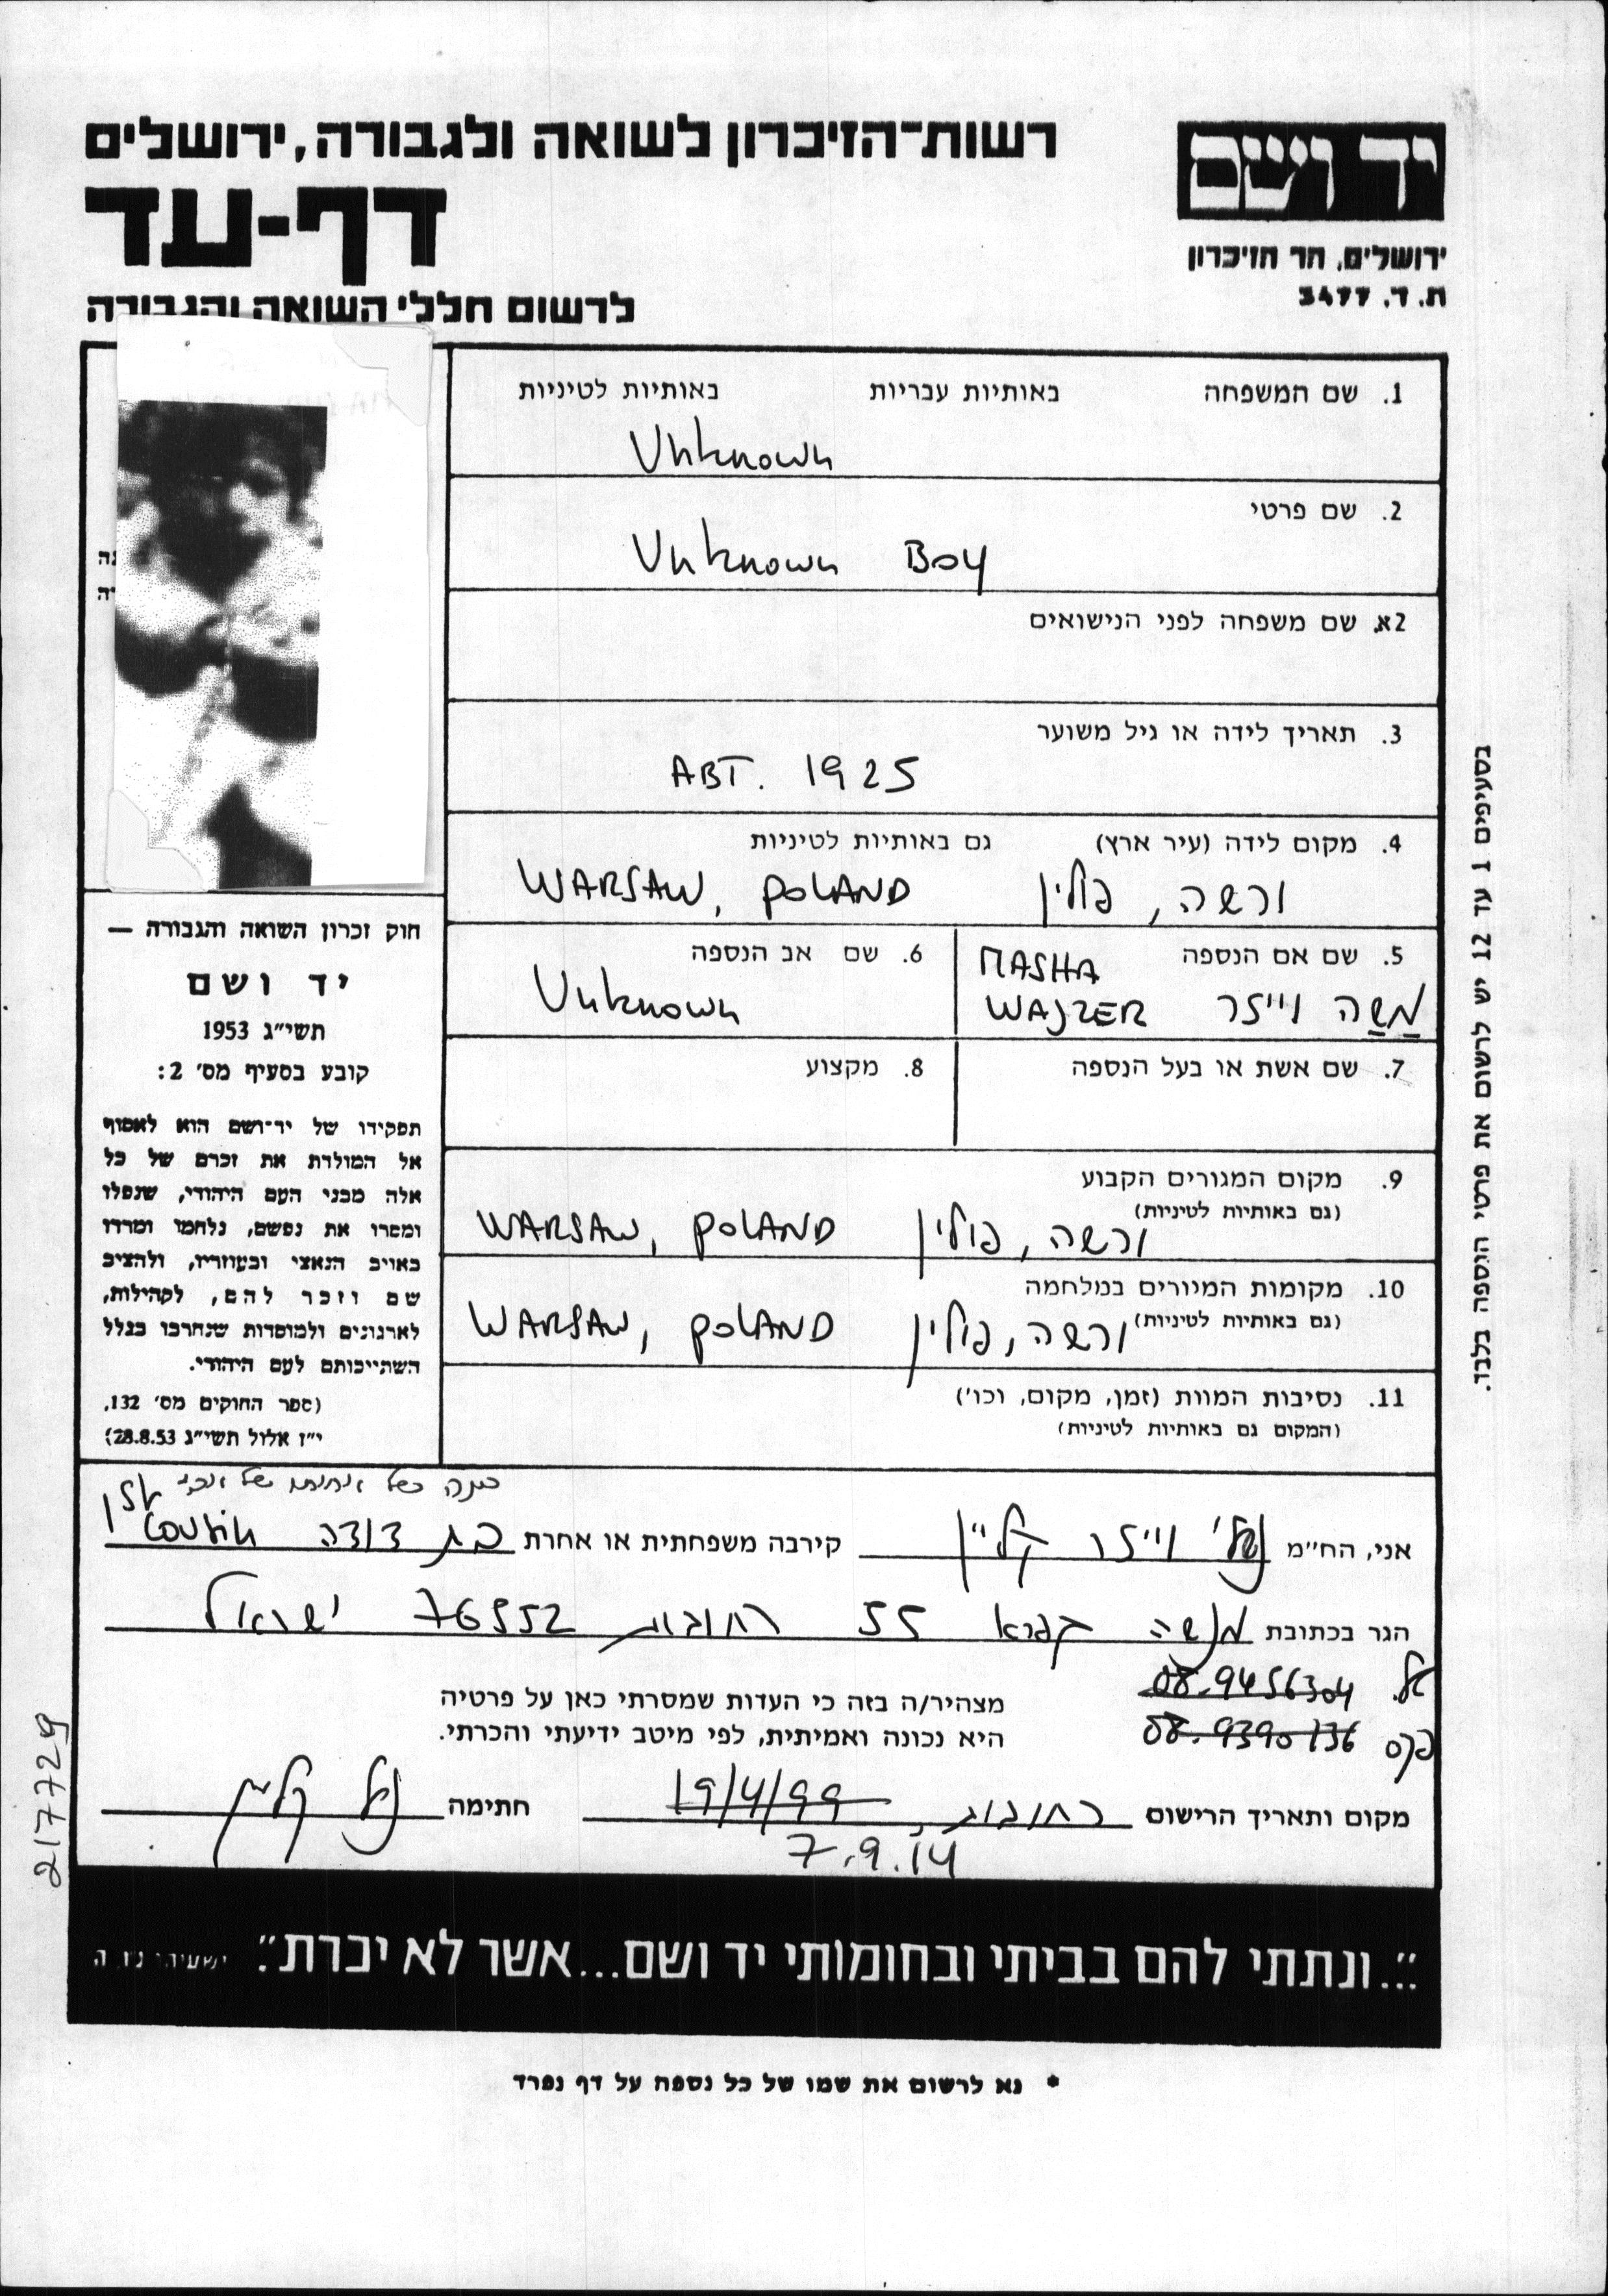 רשות־הזיכרון לשואה ולגבורה, ירושלים
דף-עד
לרשום חללי השואה והגבורה
יד ושם
ירושלים, הר הזיכרון
ת. ד. 3477
1. שם המשפחה באותיות עבריות באותיות לטיניות
Unknown
2. שם פרטי
Unknown Boy
2א. שם משפחה לפני הנישואים
3. תאריך לידה או גיל משוער
ABT. 1925
4. מקום לידה (עיר ארץ) גם באותיות לטיניות
ורשה, פולין WARSAW, POLAND
5. שם אם הנספה MASHA
מַשַה וייזר WAJZER
6. שם אב הנספה
Unknown
7. שם אשת או בעל הנספה
8. מקצוע
9. מקום המגורים הקבוע
(גם באותיות לטיניות)
ורשה, פולין WARSAW, POLAND
10. מקומות המיורים במלחמה
(גם באותיות לטיניות) ורשה, פולין WARSAW, POLAND
11. נסיבות המוות (זמן, מקום, וכו')
(המקום גם באותיות לטיניות)
חוק זכרון השואה והגבורה —
יד ושם
תשי״ג 1953
קובע בסעיף מס׳ 2:
תפקידו של יד־ושם הוא לאסוף
אל המולדת את זכרם של כל
אלה מבני העם היהודי, שנפלו
ומסרו את נפשם, נלחמו ומרדו
באויב הנאצי ובעוזריו, ולהציב
שם וזכר להם, לקהילות,
לארגונים ולמוסדות שנחרבו בגלל
השתייכותם לעם היהודי.
(ספר החוקים מס׳ 132,
י״ז אלול תשי״ג 28.8.53)
בסעיפים 1 עד 12 יש לרשום את פרטי הנספה בלבד.
אני, הח״מ וייזר קליין קירבה משפחתית או אחרת בת דודה Cousin
הגר בכתובת מנשה קפרא 55 רחובות 76552 ישראל
טל. 08-9456304
פקס 08-9390136
מצהיר/ה בזה כי העדות שמסרתי כאן על פרטיה
היא נכונה ואמיתית, לפי מיטב ידיעתי והכרתי.
מקום ותאריך הרישום רחובות, 19/4/99 חתימה
7.9.14
217729
״...ונתתי להם בביתי ובחומותי יד ושם...אשר לא יכרת״. ישעיהו נו, ה
* נא לרשום את שמו של כל נספה על דף נפרד